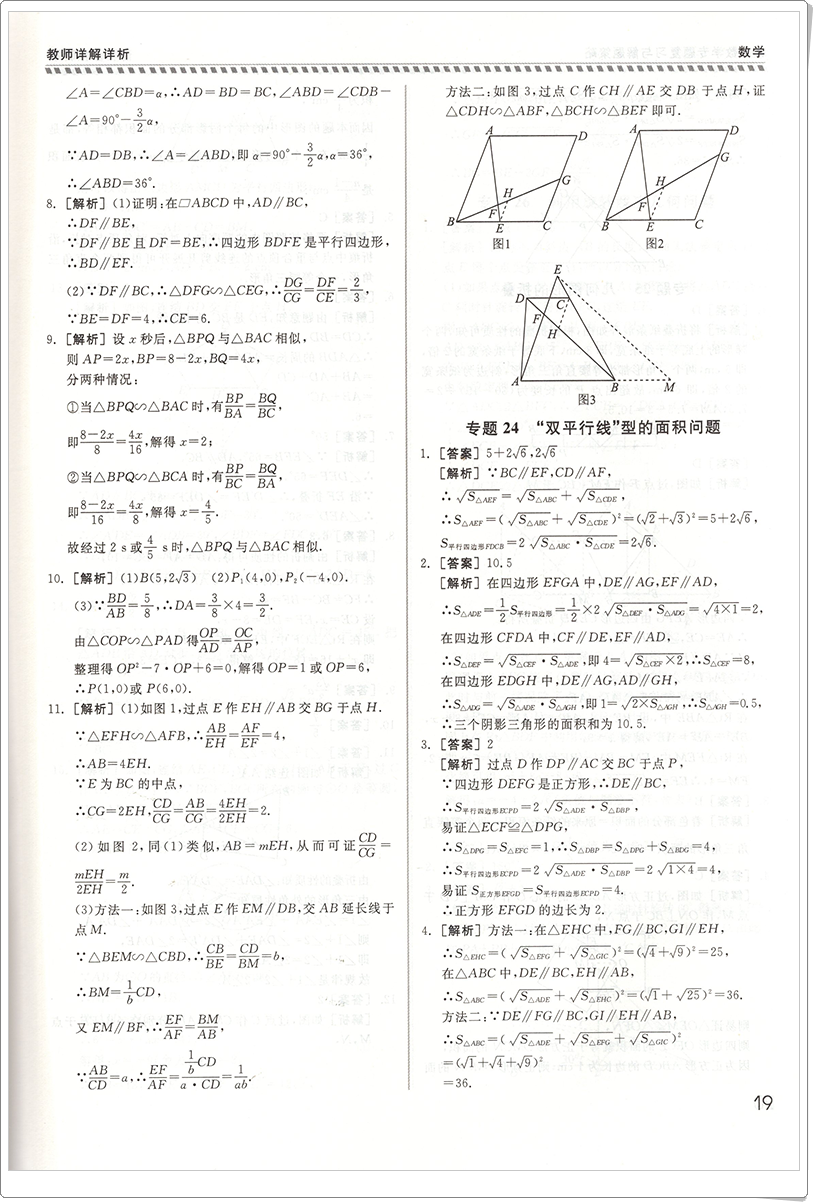 教师详解详析
数学
∠A=∠CBD=α,∴AD=BD=BC,∠ABD=∠CDB-
∠A=90°-3/2α,
∵AD=DB,∴∠A=∠ABD,即α=90°-3/2α,α=36°,
∴∠ABD=36°.
8. [解析] (1)证明:在▱ABCD中,AD∥BC,
∴DF∥BE,
∵DF∥BE且DF=BE,∴四边形BDFE是平行四边形,
∴BD∥EF.
(2)∵DF∥BC,∴△DFG∽△CEG,∴DG/CG=DF/CE=2/3,
∵BE=DF=4,∴CE=6.
9. [解析] 设x秒后,△BPQ与△BAC相似,
则AP=2x,BP=8-2x,BQ=4x,
分两种情况:
①当△BPQ∽△BAC时,有BP/BA=BQ/BC,
即(8-2x)/8=4x/16,解得x=2;
②当△BPQ∽△BCA时,有BP/BC=BQ/BA,
即(8-2x)/16=4x/8,解得x=4/5.
故经过2 s或4/5 s时,△BPQ与△BAC相似.
10. [解析] (1)B(5,2√3) (2)P₁(4,0),P₂(-4,0).
(3)∵BD/AB=5/8,∴DA=3/8×4=3/2.
由△COP∽△PAD得OP/AD=OC/AP,
整理得OP²-7·OP+6=0,解得OP=1或OP=6,
∴P(1,0)或P(6,0).
11. [解析] (1)如图1,过点E作EH∥AB交BG于点H.
∵△EFH∽△AFB,∴AB/EH=AF/EF=4,
∴AB=4EH.
∵E为BC的中点,
∴CG=2EH,CD/CG=AB/CG=4EH/2EH=2.
(2)如图2,同(1)类似,AB=mEH,从而可证CD/CG=
mEH/2EH=m/2.
(3)方法一:如图3,过点E作EM∥DB,交AB延长线于
点M.
∵△BEM∽△CBD,∴CB/BE=CD/BM=b,
∴BM=1/b CD,
又EM∥BF,∴EF/AF=BM/AB,
∵AB/CD=a,∴EF/AF=(1/b CD)/(a·CD)=1/ab.
方法二:如图3,过点C作CH∥AE交DB于点H,证
△CDH∽△ABF,△BCH∽△BEF即可.
A
D
G
H
F
B
E
C
图1
A
D
G
H
F
B
E
C
图2
E
D
C
F
H
A
B
M
图3
专题24 “双平行线”型的面积问题
1. [答案] 5+2√6,2√6
[解析] ∵BC∥EF,CD∥AF,
∴√S△AEF=√S△ABC+√S△CDE,
∴S△AEF=(√S△ABC+√S△CDE)²=(√2+√3)²=5+2√6,
S平行四边形FDCB=2√S△ABC·S△CDE=2√6.
2. [答案] 10.5
[解析] 在四边形EFGA中,DE∥AG,EF∥AD,
∴S△ADE=1/2S平行四边形=1/2×2√S△DEF·S△ADG=√4×1=2,
在四边形CFDA中,CF∥DE,EF∥AD,
∴S△DEF=√S△CEF·S△ADE,即4=√S△CEF×2,∴S△CEF=8,
在四边形EDGH中,DE∥AG,AD∥GH,
∴S△ADG=√S△ADE·S△AGH,即1=√2×S△AGH,∴S△AGH=0.5,
∴三个阴影三角形的面积和为10.5.
3. [答案] 2
[解析] 过点D作DP∥AC交BC于点P,
∵四边形DEFG是正方形,∴DE∥BC,
∴S平行四边形ECPD=2√S△ADE·S△DBP,
易证△ECF≌△DPG,
∴S△DPG=S△EFC=1,∴S△DBP=S△DPG+S△BDG=4,
∴S平行四边形ECPD=2√S△ADE·S△DBP=2√1×4=4,
易证S正方形EFGD=S平行四边形ECPD=4.
∴正方形EFGD的边长为2.
4. [解析] 方法一:在△EHC中,FG∥BC,GI∥EH,
∴S△EHC=(√S△EFG+√S△GIC)²=(√4+√9)²=25,
在△ABC中,DE∥BC,EH∥AB,
∴S△ABC=(√S△ADE+√S△EHC)²=(√1+√25)²=36.
方法二:∵DE∥FG∥BC,GI∥EH∥AB,
∴S△ABC=(√S△ADE+√S△EFG+√S△GIC)²
=(√1+√4+√9)²
=36.
19